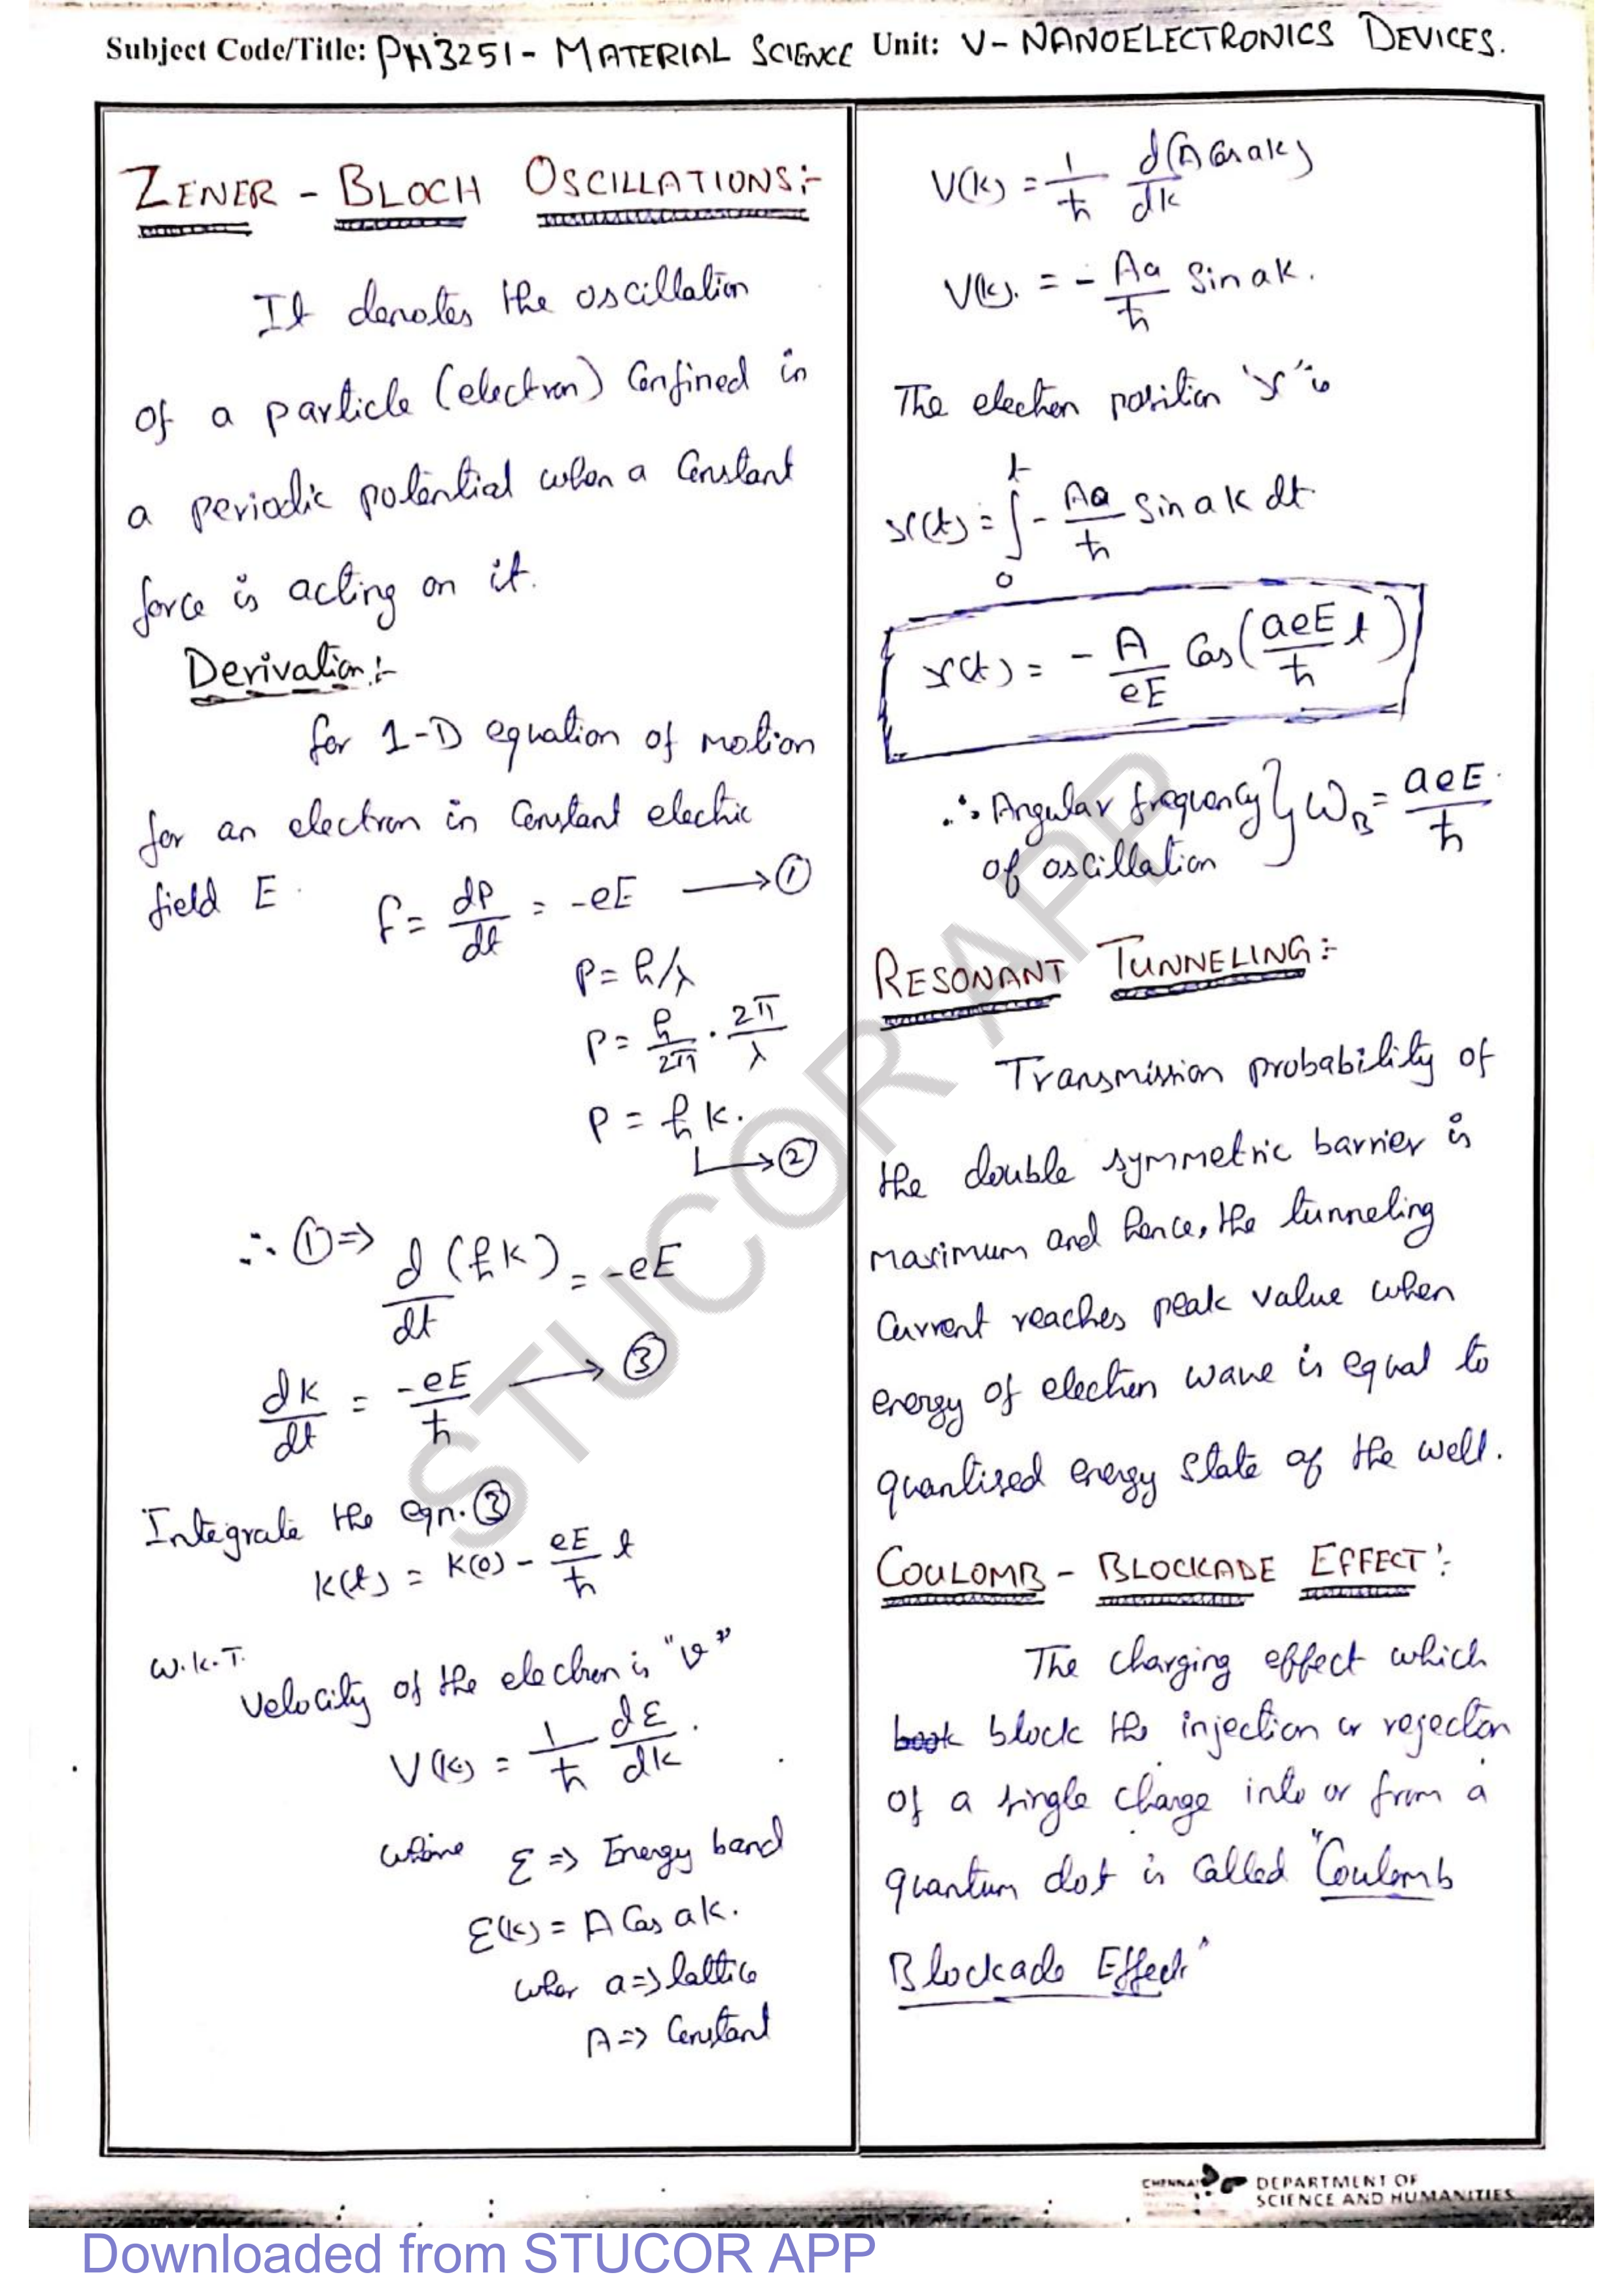 Subject Code/Title: PH3251 - MATERIAL SCIENCE Unit: V - NANOELECTRONICS DEVICES.
ZENER - BLOCH OSCILLATIONS:-
It denotes the oscillation
of a particle (electron) Confined in
a periodic potential when a Constant
force is acting on it.
Derivation:-
for 1-D equation of motion
for an electron in Constant electric
field E.
F = dP/dt = -eE ⟶ ①
P = h/λ
P = h/2π · 2π/λ
P = ħk.
↳ ②
∴ ① ⇒ d/dt (ħk) = -eE
dk/dt = -eE/ħ ⟶ ③
Integrate the eqn. ③
k(t) = k(0) - eE/ħ t
W.K.T.
Velocity of the electron is "v"
V(k) = 1/ħ dε/dk.
where ε => Energy band
ε(k) = A Cos ak.
wher a => lattice
A => Constant
V(k) = 1/ħ d(A Cos ak)/dk
V(k). = - Aa/ħ Sin ak.
The electron position 'x' is
x(t) = ∫₀ᵗ - Aa/ħ Sin ak dt
x(t) = - A/eE Cos(aeE/ħ t)
∴ Angular frequency } ω_B = aeE/ħ.
of oscillation
RESONANT TUNNELING:-
Transmission probability of
the double symmetric barrier is
maximum and hence, the tunneling
Current reaches peak value when
energy of electron wave is equal to
quantized energy state of the well.
COULOMB - BLOCKADE EFFECT:
The charging effect which
book block the injection or rejection
of a single charge into or from a
quantum dot is Called "Coulomb
Blockade Effect"
STUCOR APP
CHENNAI
DEPARTMENT OF
SCIENCE AND HUMANITIES
Downloaded from STUCOR APP